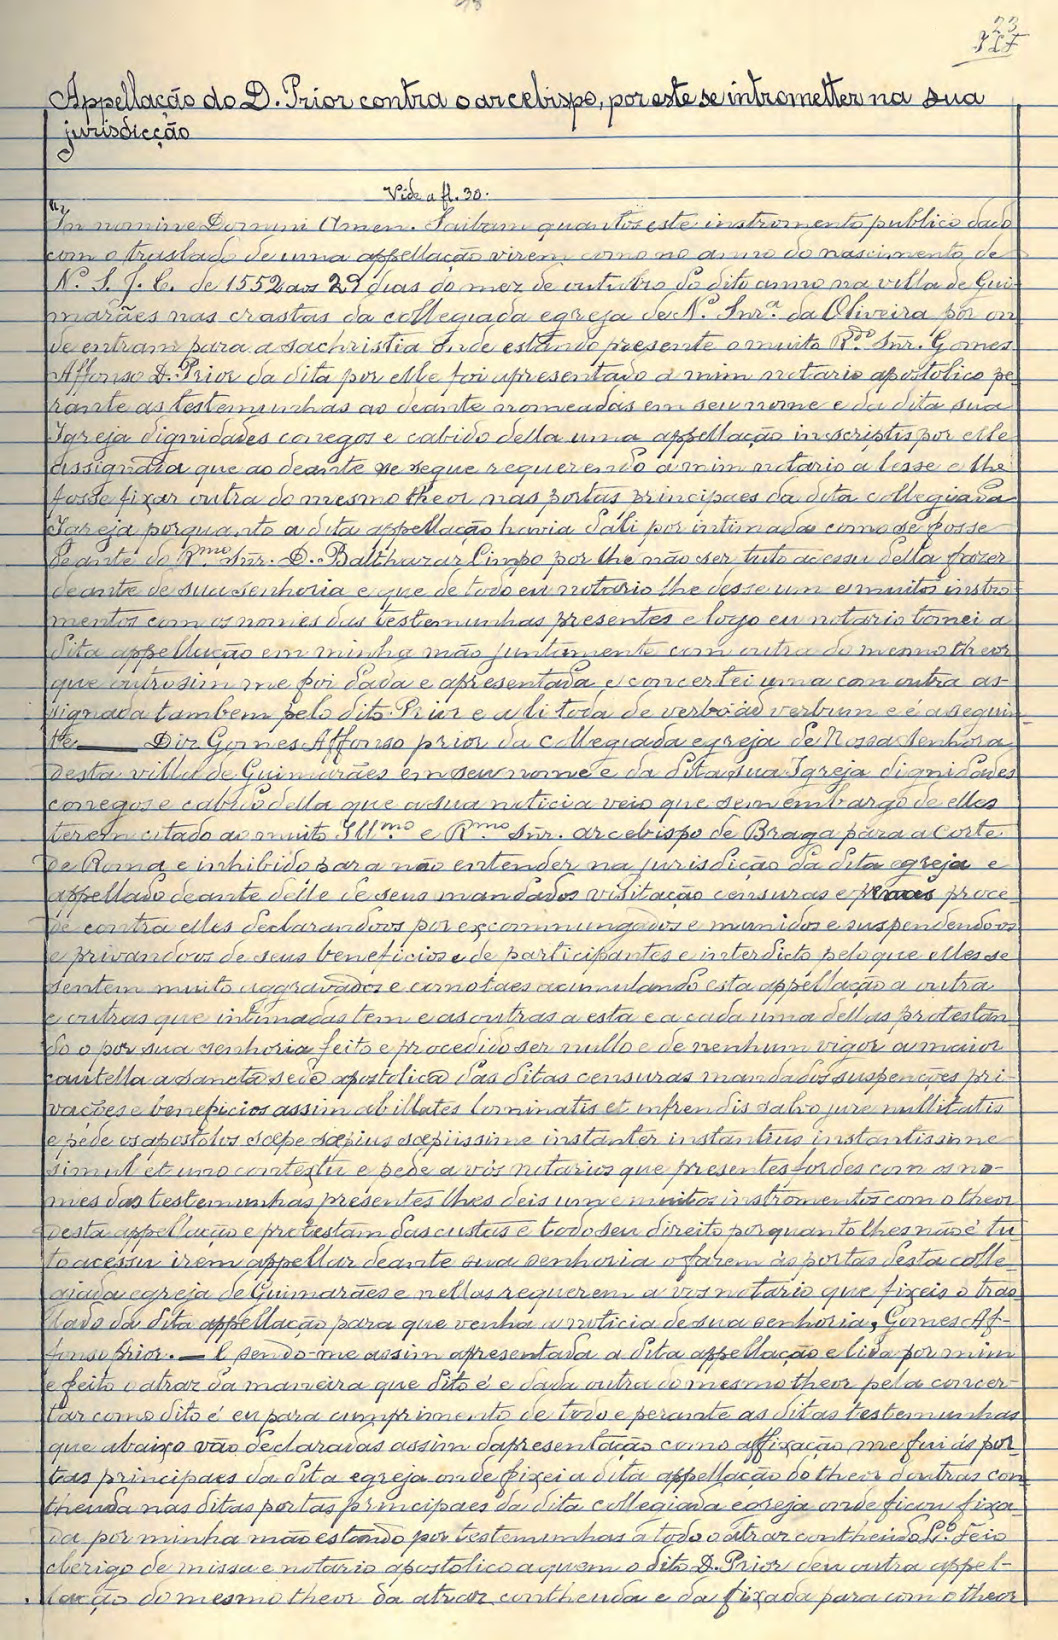 23
Appellação do D. Prior contra o arcebispo, por este se intrometter na sua
jurisdicção
Vide a fl. 30.
In nomine Domini Amen. Saibam quantos este instromento publico dado
com o traslado de uma appellação virem como no anno do nascimento de
N. S. J. C. de 1552 aos 29 dias do mez de outubro do dito anno na villa de Gui-
marães nas crastas da collegiada egreja de N. Snr.ª da Oliveira por on
de entram para a sachristia onde estando presente o muito R.do Snr. Gomes
Affonso D. Prior da dita por elle foi apresentado a mim notario apostolico pe-
rante as testemunhas ao deante nomeadas em seu nome e da dita sua
Igreja dignidades conegos e cabido della uma appellação inscriptis por elle
assignada que ao deante se segue requerendo a mim notario a lesse e lhe
fosse fixar outra do mesmo theor nas portas principaes da dita collegiada
Igreja porquanto a dita appellação havia dáli por intimada como se fosse
deante do R.mo Snr. D. Balthazar Limpo por lhe não ser tuto acessu della fazer
deante de sua senhoria e que de todo eu notario lhe desse um e muitos instro-
mentos com os nomes das testemunhas presentes e logo eu notario tomei a
dita appellação em minha mão juntamente com outra do mesmo theor
que outrosim me foi dada e apresentada e concertei uma com outra as-
signada tambem pelo dito Prior e a li toda de verbo ad verbum e é a seguin-
te — Diz Gomes Affonso prior da collegiada egreja de Nossa Senhora
desta villa de Guimarães em seu nome e da dita sua Igreja dignidades
conegos e cabido della que a sua noticia veio que sem embargo de elles
terem citado ao muito Ill.mo e R.mo Snr. arcebispo de Braga para a Corte
de Roma e inhibido para não entender na jurisdição da dita egreja e
appellado deante delle de seus mandados visitação censuras e penas proce-
de contra elles declarandoos por excommungados e munidos e suspendendoos
e privandoos de seus beneficios e de participantes e interdicto pelo que elles se
sentem muito aggravados e como taes acumulando esta appellação a outra
e outras que intimadas tem e as outras a esta e a cada uma dellas protestan-
do o por sua senhoria feito e procedido ser nullo e de nenhum vigor a maior
cautella a sancta sede apostolica das ditas censuras mandados suspenções pri-
vações e beneficios assim abillates lominatis et infrendis salvo jure nullitatis
e pede os apostolos sæpe sæpius sæpiissime instanter instantius instantissime
simul et uno contextu e pede a vós notarios que presentes fordes com os no-
mes das testemunhas presentes lhes deis um e muitos instromentos com o theor
desta appellação e protestam das custas e todo seu direito por quanto lhes não é tu-
to acessu irem appellar deante sua senhoria o farem ás portas desta colle-
giada egreja de Guimarães e nellas requerem a vos notario que fixeis o tras-
lado da dita appellação para que venha a noticia de sua senhoria, Gomes Af-
fonso Prior. — E sendo-me assim apresentada a dita appellação e lida por mim
e feito o atraz da maneira que dito é e dada outra do mesmo theor pela concer-
tar como dito é eu para cumprimento de todo e perante as ditas testemunhas
que abaixo vão declaradas assim dapresentação como affixação me fui ás por-
tas principaes da dita egreja onde fixei a dita appellação do theor doutras con-
theuda nas ditas portas principaes da dita collegiada egreja onde ficou fixa-
da por minha mão estando por testemunhas a todo o atraz contheudo L.º Feio
clerigo de missa e notario apostolico a quem o dito D. Prior deu outra appel-
lação do mesmo theor da atraz contheuda e da fixada para com o theor